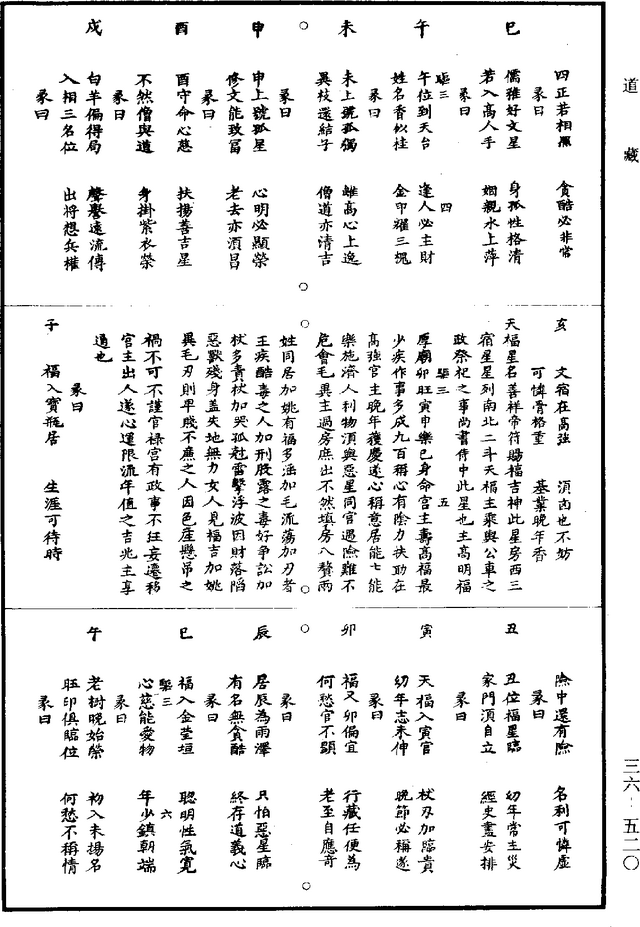 道藏
四正若相照　貪酷必非常
巳
彖曰
儒雅好文星　身孤性格清
若入高人手　姻親水上萍
午
彖曰
午位到天台　逢人必主財
姓名香似桂　金印耀三槐
未
彖曰
未上號孤獨　離高心上逸
異杖還結子　僧道亦清吉
申
彖曰
申上號孤星　心明必顯榮
修文能致富　老去亦須昌
酉
彖曰
酉守命心慈　扶揚善吉星
不然僧與道　身掛紫衣榮
戌
彖曰
白羊偏得局　聲譽遠流傳
入相三名位　出將想兵權
彖曰
亥　文宿在高強　須凶也不妨
可憐骨格重　基業晚年香
天福星名善祥帝符賜福吉神此星房西三
宿星星列南北二斗天福主乘與公車之
政祭祀之事尚書侍中此星也主高明福
厚廟卯旺寅申樂巳身命宮主壽高福最
少疾作事多成九百稱心有陰力扶助在
高強官主晚年獲慶遂心稱意居能七能
樂施濟人利物須與惡星同官遇險難不
危會毛異主過房庶出不然填房八贅兩
姓同居加姚有福多滛加毛流蕩加刃者
王疾酷毒之人加刑股露之毒好爭訟加
杖多責杖加哭孤尅雷擊浮波因財落陷
惡獸殘身蓋失地無力女人見福吉加姚
異毛刃則卑賤不廉之人因色產懸吊之
禍不可不謹官祿宮有政事不狂妄遷移
官主出人遂心運限流年值之吉兆主享
通也
彖曰
子　福入寶瓶居　生涯可待時
險中還有險　名利可憐虛
丑
彖曰
丑位福星臨　幼年常主災
家門須自立　經史盡安排
寅
彖曰
天福入寅宮　杖刃加臨貴
幼年志未伸　晚節必稱遂
卯
彖曰
福又卯偏宜　行藏任便為
何愁官不顯　老至自應奇
辰
彖曰
居辰為雨澤　只怕惡星臨
有名無貪酷　終存道義心
巳
彖曰
福入金莹垣　聰明性氣寬
心慈能愛物　年少鎮朝端
午
彖曰
老樹晚始榮　初入未揚名
旺印俱臨位　何愁不稱情
彖曰
三六·五二〇